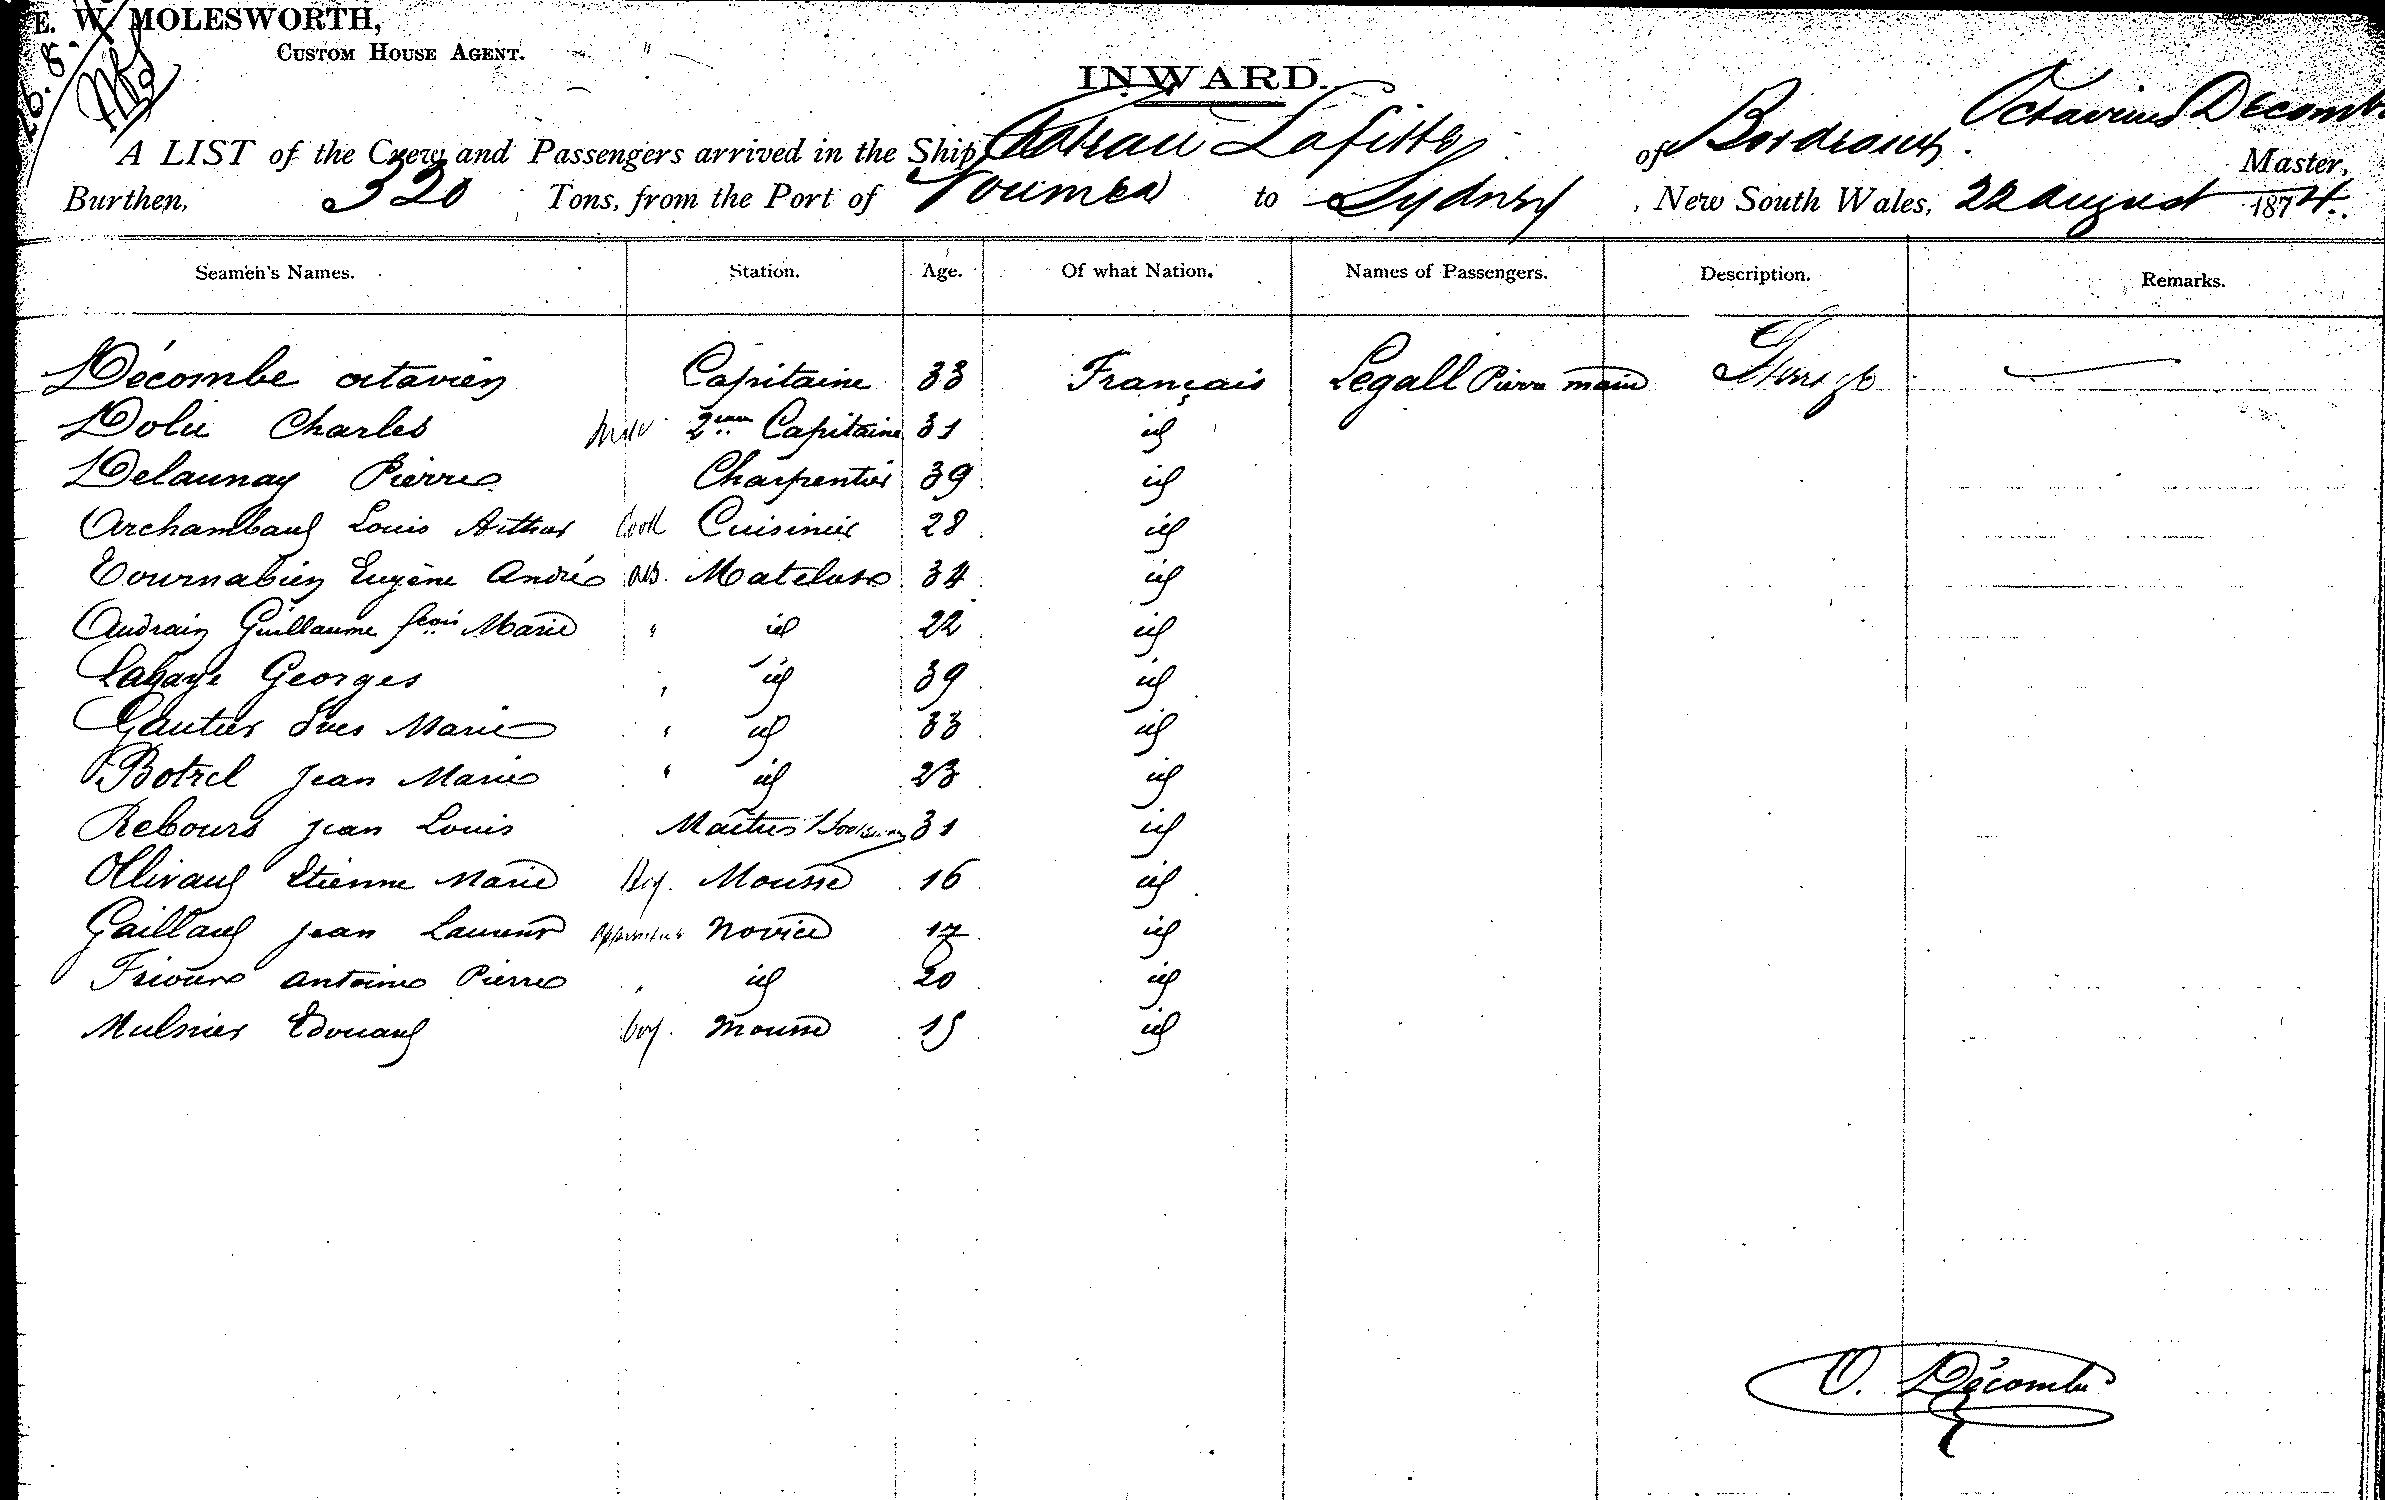 E. W. MOLESWORTH,
CUSTOM HOUSE AGENT.
INWARD.
A LIST of the Crew and Passengers arrived in the Ship Chateau Lafitte of Bordeaux. Octavius Decombe Master,
Burthen, 320 Tons, from the Port of Noumea to Sydney, New South Wales, 22 august 1874.
Seamen's Names. Station. Age. Of what Nation. Names of Passengers. Description. Remarks.
Décombe octavien Capitaine 33 Français Legall Pierre marie
Dolu Charles 2eme Capitaine 31 id
Delaunay Pierre Charpentier 39 id
Archambaud Louis Arthur Cook Cuisinier 28 id
Tournabien Eugène André AB. Matelots 34 id
Audrain Guillaume fcois Marie " id 22 id
Lahaye Georges " id 39 id
Gautier Yves Marie " id 33 id
Botrel Jean Marie " id 23 id
Rebours Jean Louis Maitres 31 id
Ollivaud Etienne Marie Boy. Mousse 16 id
Gaillaud Jean Laurent apprentice Novice 17 id
Friour antoine Pierre " id 20 id
Mulnier Edouard boy. mousse 15 id
O. Décombe